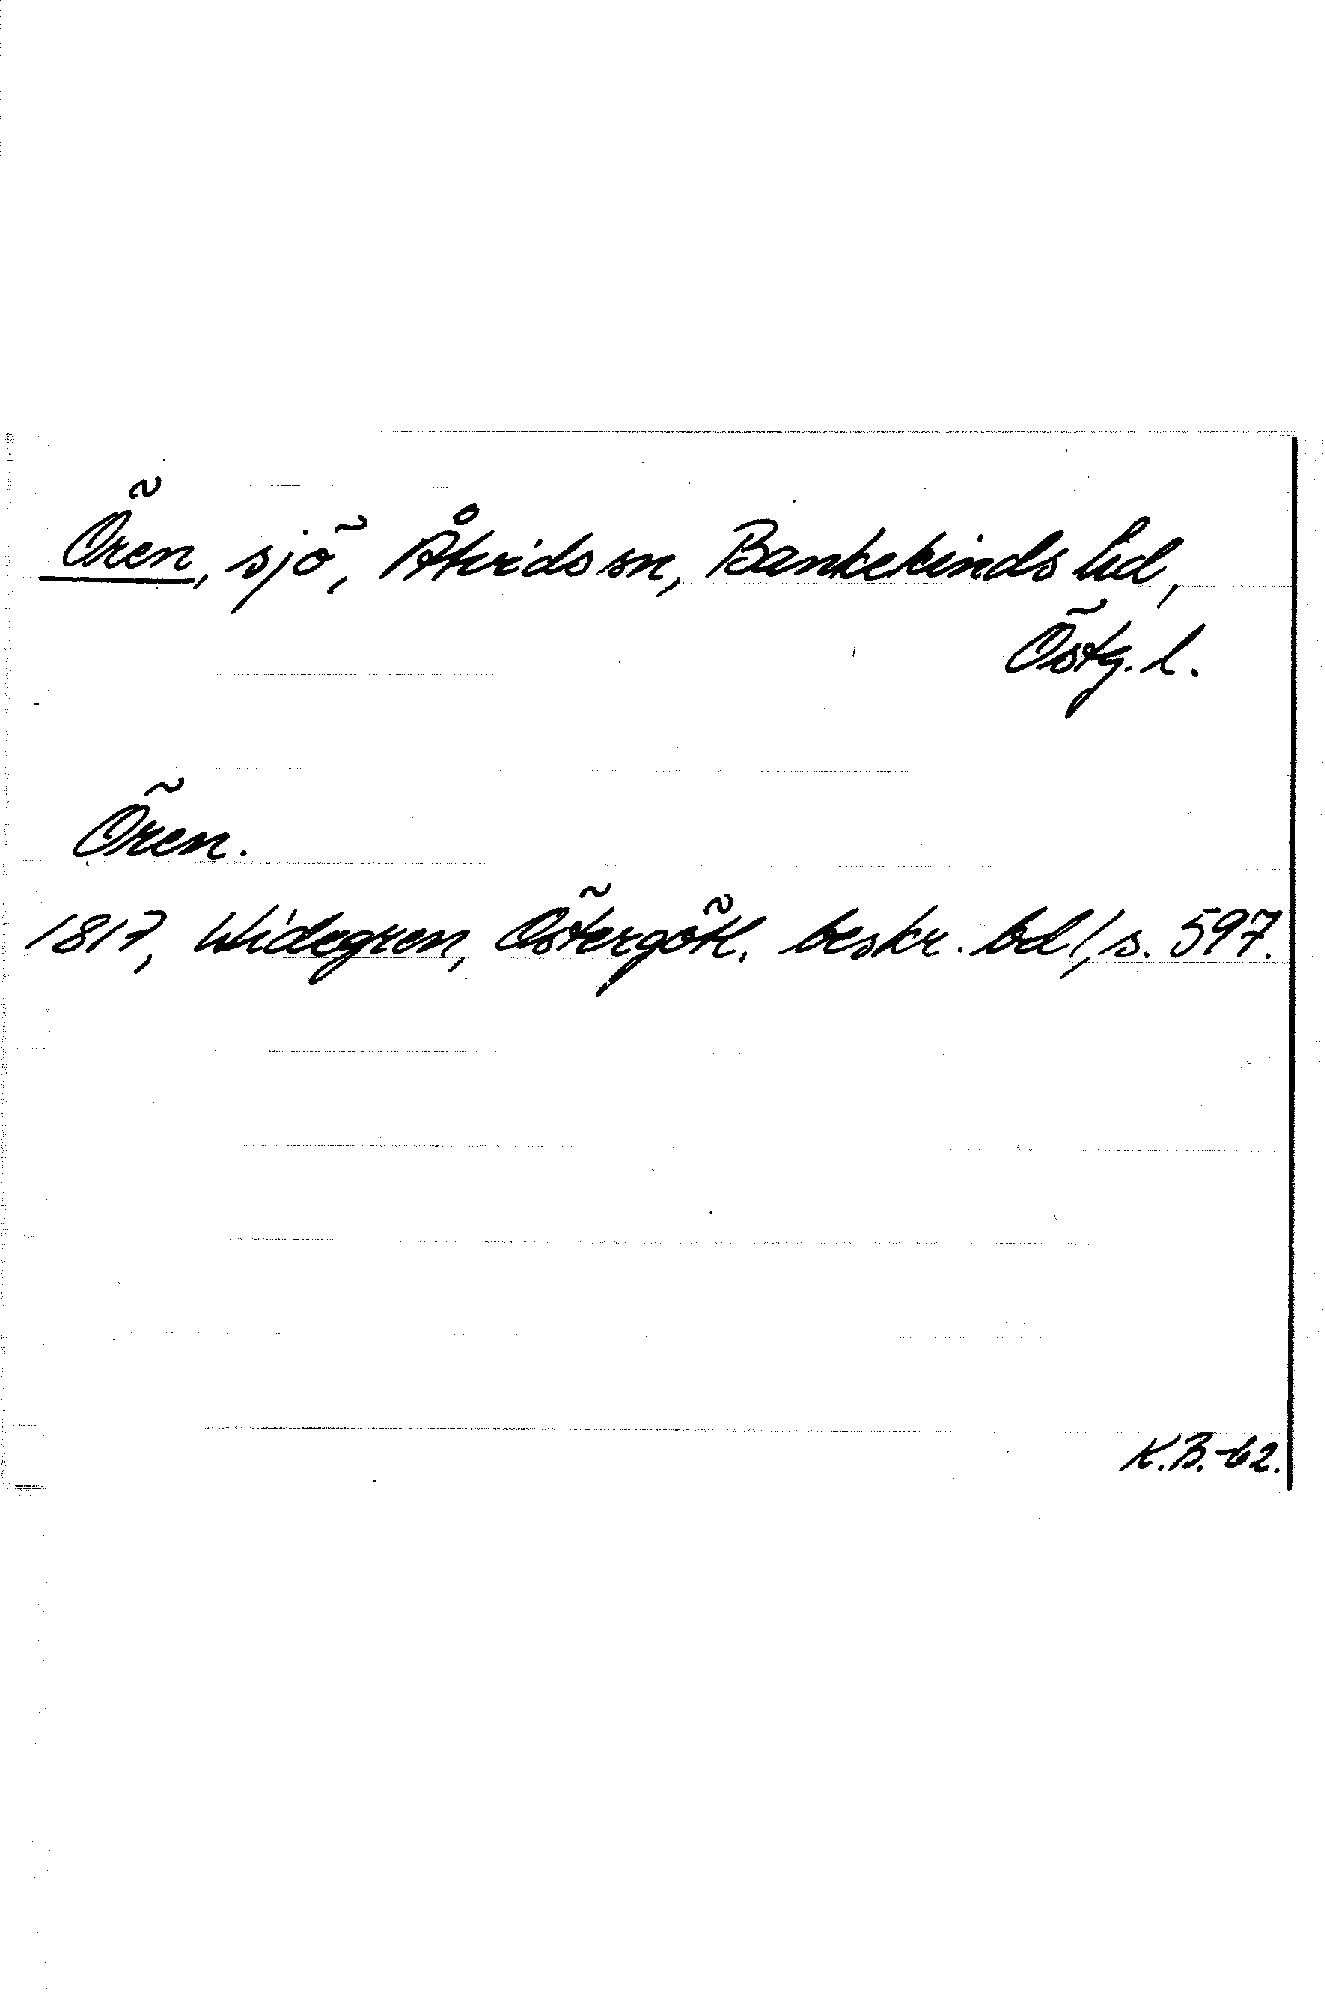 Ören, sjö, Åtvids sn, Bankekinds hd,
Östg. l.
Ören.
1817, Widegren, Östergötl. beskr. bd 1, s. 597.
K.B. -62.